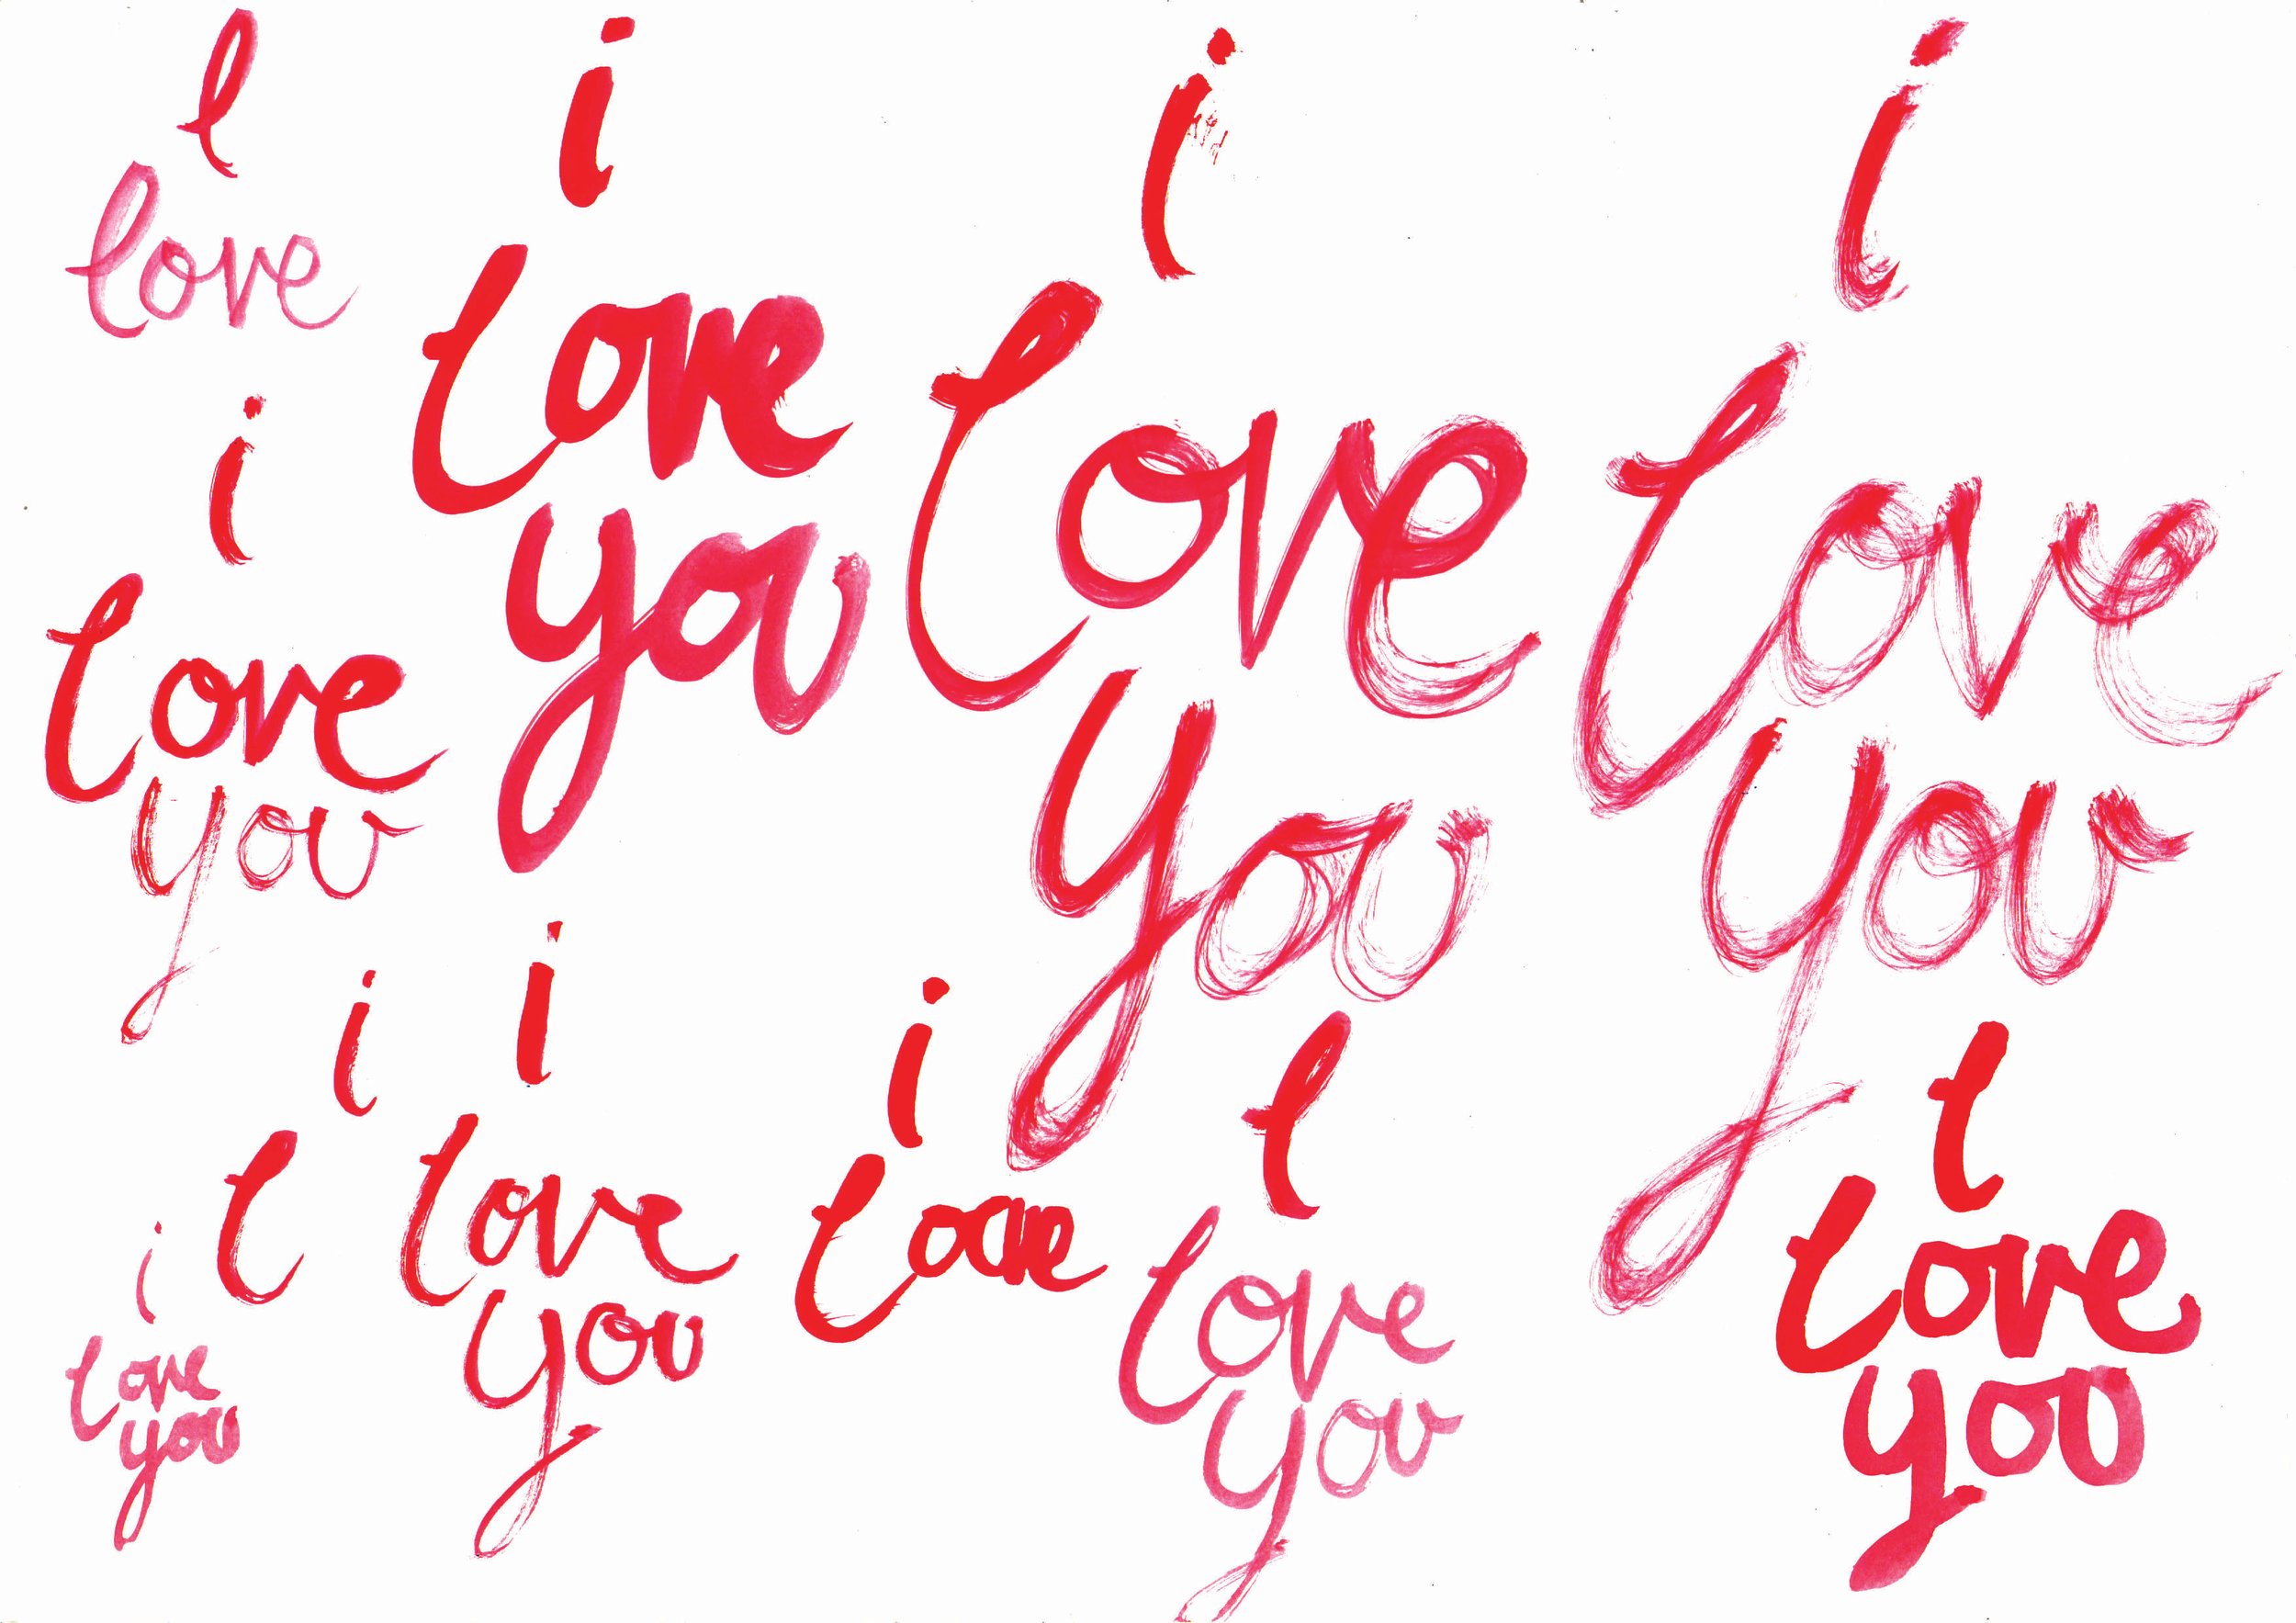 l
love
i
love
you
i
love
you
i
love
you
i
love
you
i
l
i
love
you
i
love
you
i
love
l
love
you
l
love
you